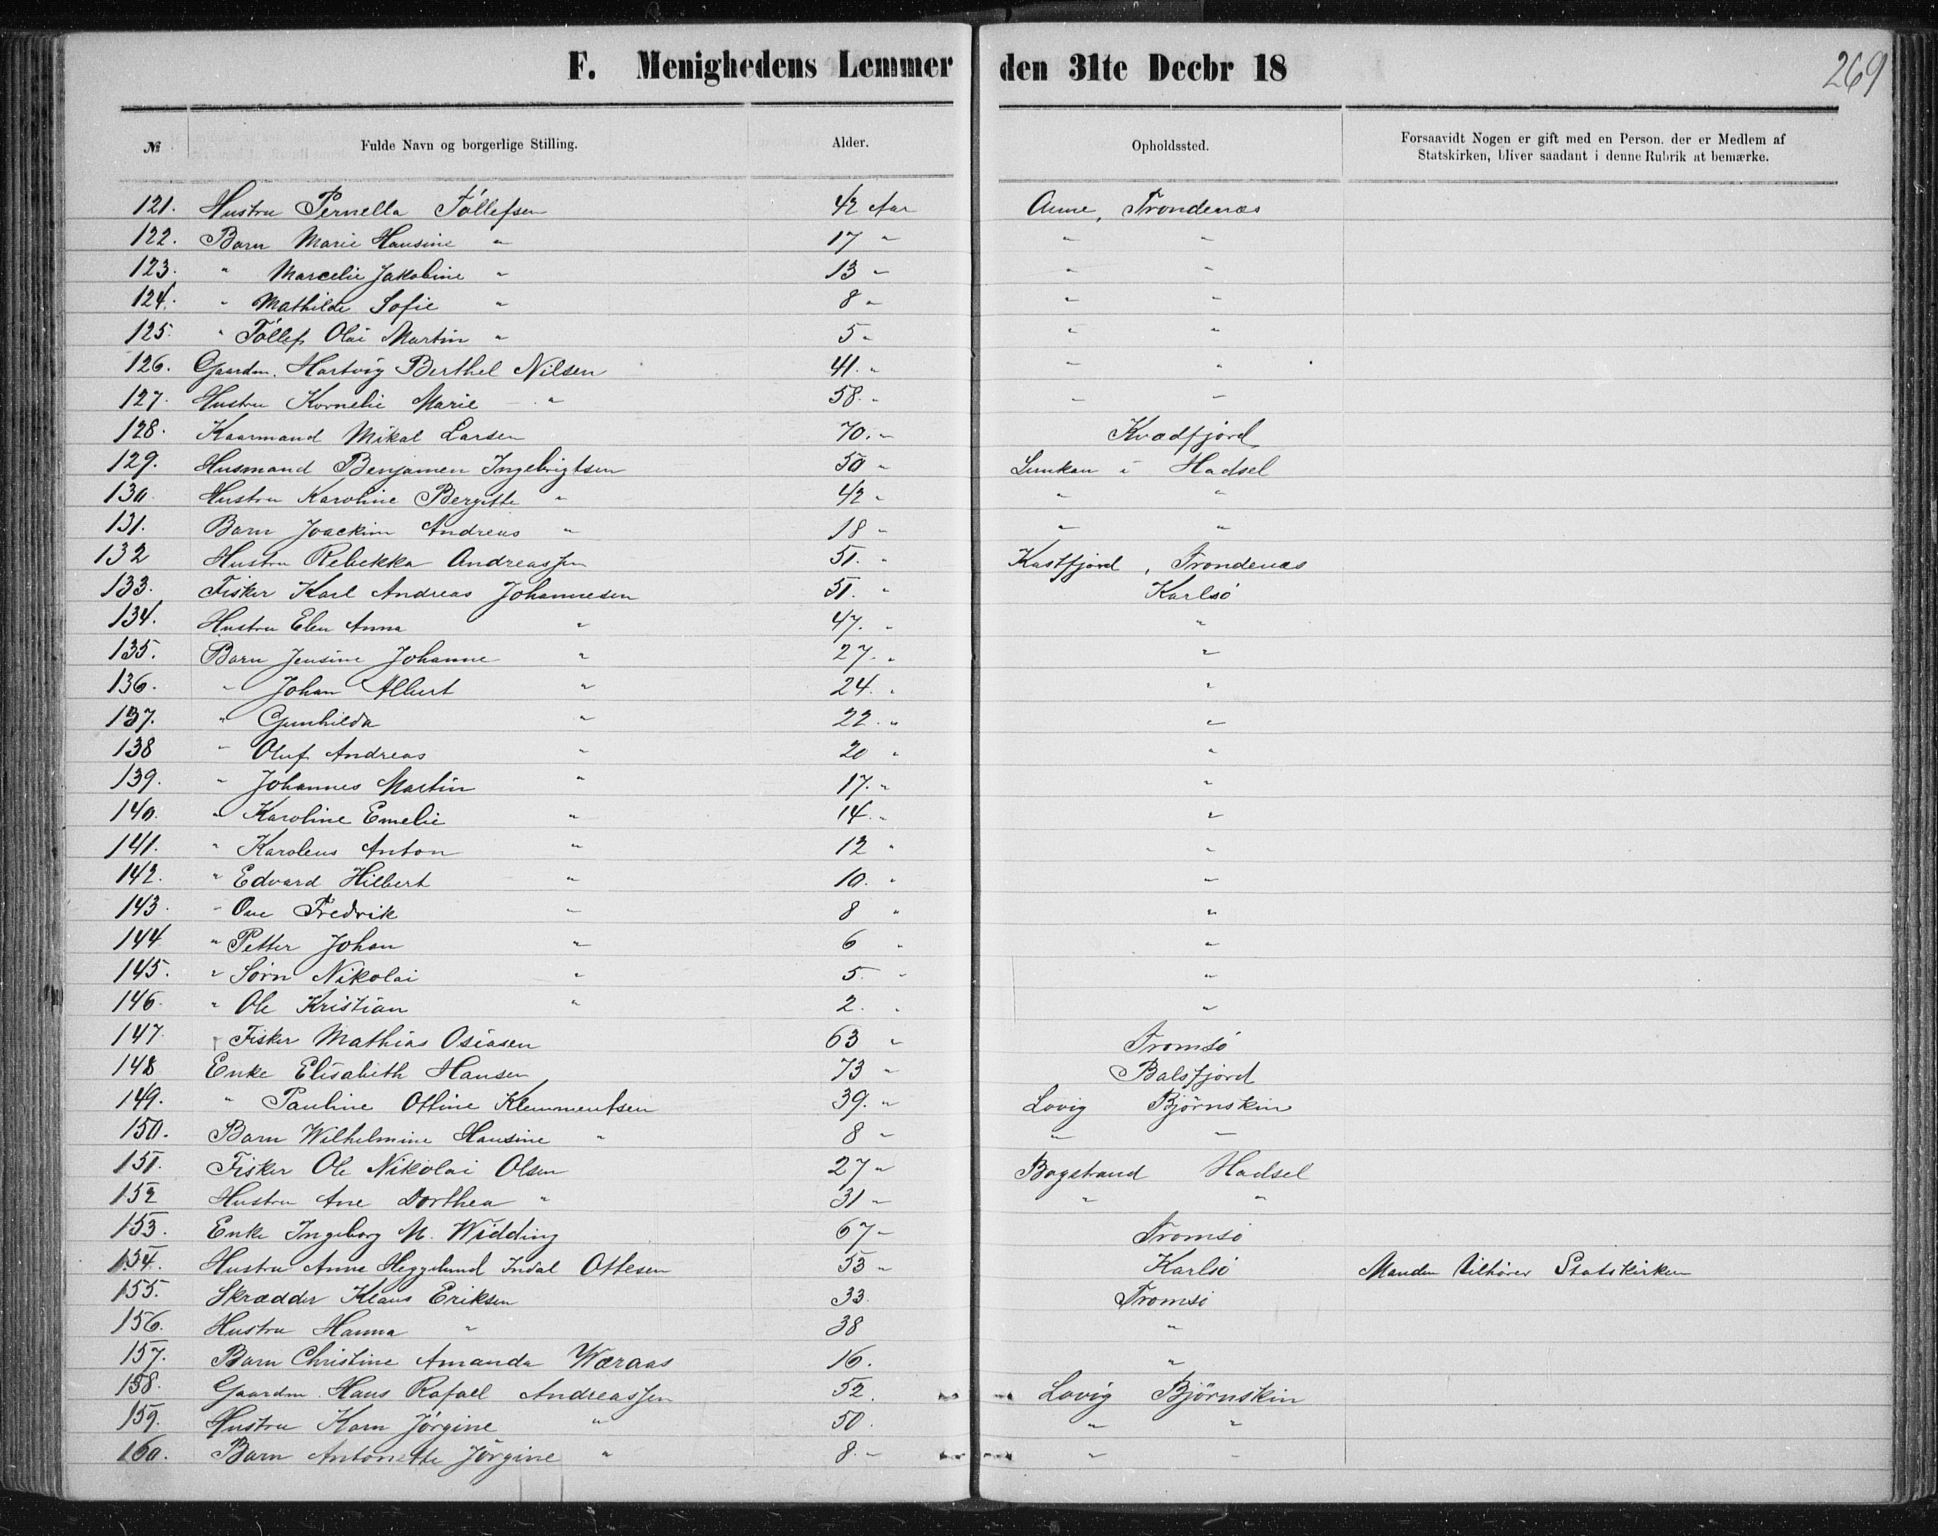 269
F. Menighedens Lemmer den 31te Decbr 18
№ Fulde Navn og borgerlige Stilling. Alder. Opholdssted. Forsaavidt Nogen er gift med en Person. der er Medlem af
Statskirken, bliver saadant i denne Rubrik at bemærke.
121. Hustru Pernella Tóllefsen 42 Aar Aune, Trondenæs
122. Barn Marie Hansine " 17 " " "
123. " Marcelie Jakobine " 13 " " "
124. " Mathilde Sofie " 8 " " "
125. " Tóllef Olai Martin " 5 " " "
126. Gaardm. Hartvig Berthel Nilsen 41. " " "
127. Hustru Kornelie Marie " 58. " " "
128. Kaarmand Mikal Larsen 70. " Kvædfjord
129. Husmand Benjamen Ingebrigtsen 50 " i Hadsel
130. Hustru Karoline Bergitte " 42 " " "
131. Barn Joackim Andreas " 18 " " "
132 Hustru Rebekka Andreassen 51. " Kastfjord, Trondenæs
133. Fisker Karl Andreas Johannesen 51. " Karlsø
134. Hustru Elen Anna " 47. " "
135. Barn Jensine Johanne " 27. " "
136. " Johan Albert " 24. " "
137. " Gunhilda " 22. " "
138 " Oluf Andreas " 20 " "
139. " Johannes Martin " 17. " "
140. " Karoline Emelie " 14. " "
141. " Karolius Anton " 12 " "
142. " Edvard Hilbert " 10. " "
143. " Ove Fredrik " 8 " "
144 " Petter Johan " 6 " "
145. " Sørn Nikolai " 5. " "
146. " Ole Kristian " 2. " "
147. Fisker Mathias Osiasen 63 " Tromsø
148 Enke Elisabeth Hansen 73 " Balsfjord
149. " Pauline Ottine Klemmentsen 39. " Lovig Bjørnskin
150. Barn Wilhelmine Hansine " 8 " " "
151. Fisker Ole Nikolai Olsen 27 " Bogstrand Hadsel
152 Hustru Ane Dorthea " 31 " " "
153. Enke Ingeborg M. Widding 67 " Tromsø
154. Hustru Anna Heggelund Indal Ottesen 53 " Karlsø Manden tilhører Statskirken
155. Skrædder Klaus Eriksen 33. Tromsø
156. Hustru Hanna " 38 "
157. Barn Christine Amanda Wæraas 16. "
158. Gaardm. Hans Rafael Andreassen 52. Lovig Bjørnskin
159. Hustru Karn Jørgine " 50. " "
160. Barn Antonette Jørgine " 8. " " "